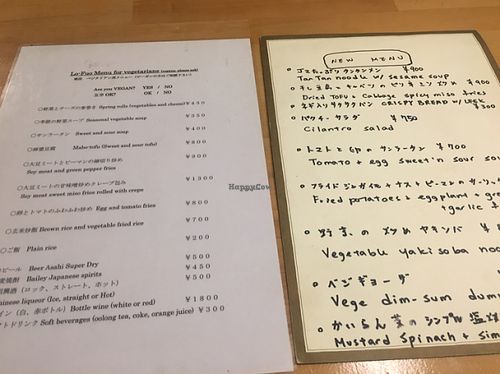 Lo-Fuo Menu for vegetarians
Are you VEGAN? YES / NO
五辛 OK? OK / NO
Spring rolls (vegetables and cheese) ¥450
○季節の野菜スープ Seasonal vegetable soup ¥350
○サンラータン Sweet and sour soup ¥400
○麻婆豆腐 Mabo-tofu (Sweet and sour tofu) ¥800
○大豆ミートとピーマンの細切り炒め ¥900
Soy meat and green pepper fries
○大豆ミートの甘味噌炒めクレープ包み ¥1300
Soy meat sweet miso fries rolled with crepe
○卵とトマトのふわふわ炒め Egg and tomato fries ¥800
○玄米炒飯 Brown rice and vegetable fried rice ¥700
○ご飯 Plain rice ¥200
ビール Beer Asahi Super Dry ¥500
麦焼酎 Bailey Japanese spirits ¥450
(ロック、ストレート、ホット) ¥500
Chinese liquor (Ice, straight or Hot)
イン (白、赤ボトル) Bottle wine (white or red) ¥1800
トドリンク Soft beverages (oolong tea, coke, orange juice) ¥300
HappyCow
NEW MENU
ゴマたっぷりタンタンメン ¥900
Tan Tan noodle w/ sesame soup
干し豆腐 キャベツ ピリ辛ミソ炒メ ¥900
Dried Tofu & Cabbage spicy miso fries
CRISPY BREAD w/ LEEK ¥300
パクチーサラダ ¥750
Cilantro salad
トマトと
サンラータン ¥700
Tomato + egg sweet'n sour so
フライドジャガイモ + ナス + ピーマン
Fried potatoes + eggplant + gre
+ garlic
野菜の
Vegetable yaki soba noo
ベジギョーザ
Vege dim-sum dum
かいらん菜のシンプル塩炒
Mustard Spinach + sim